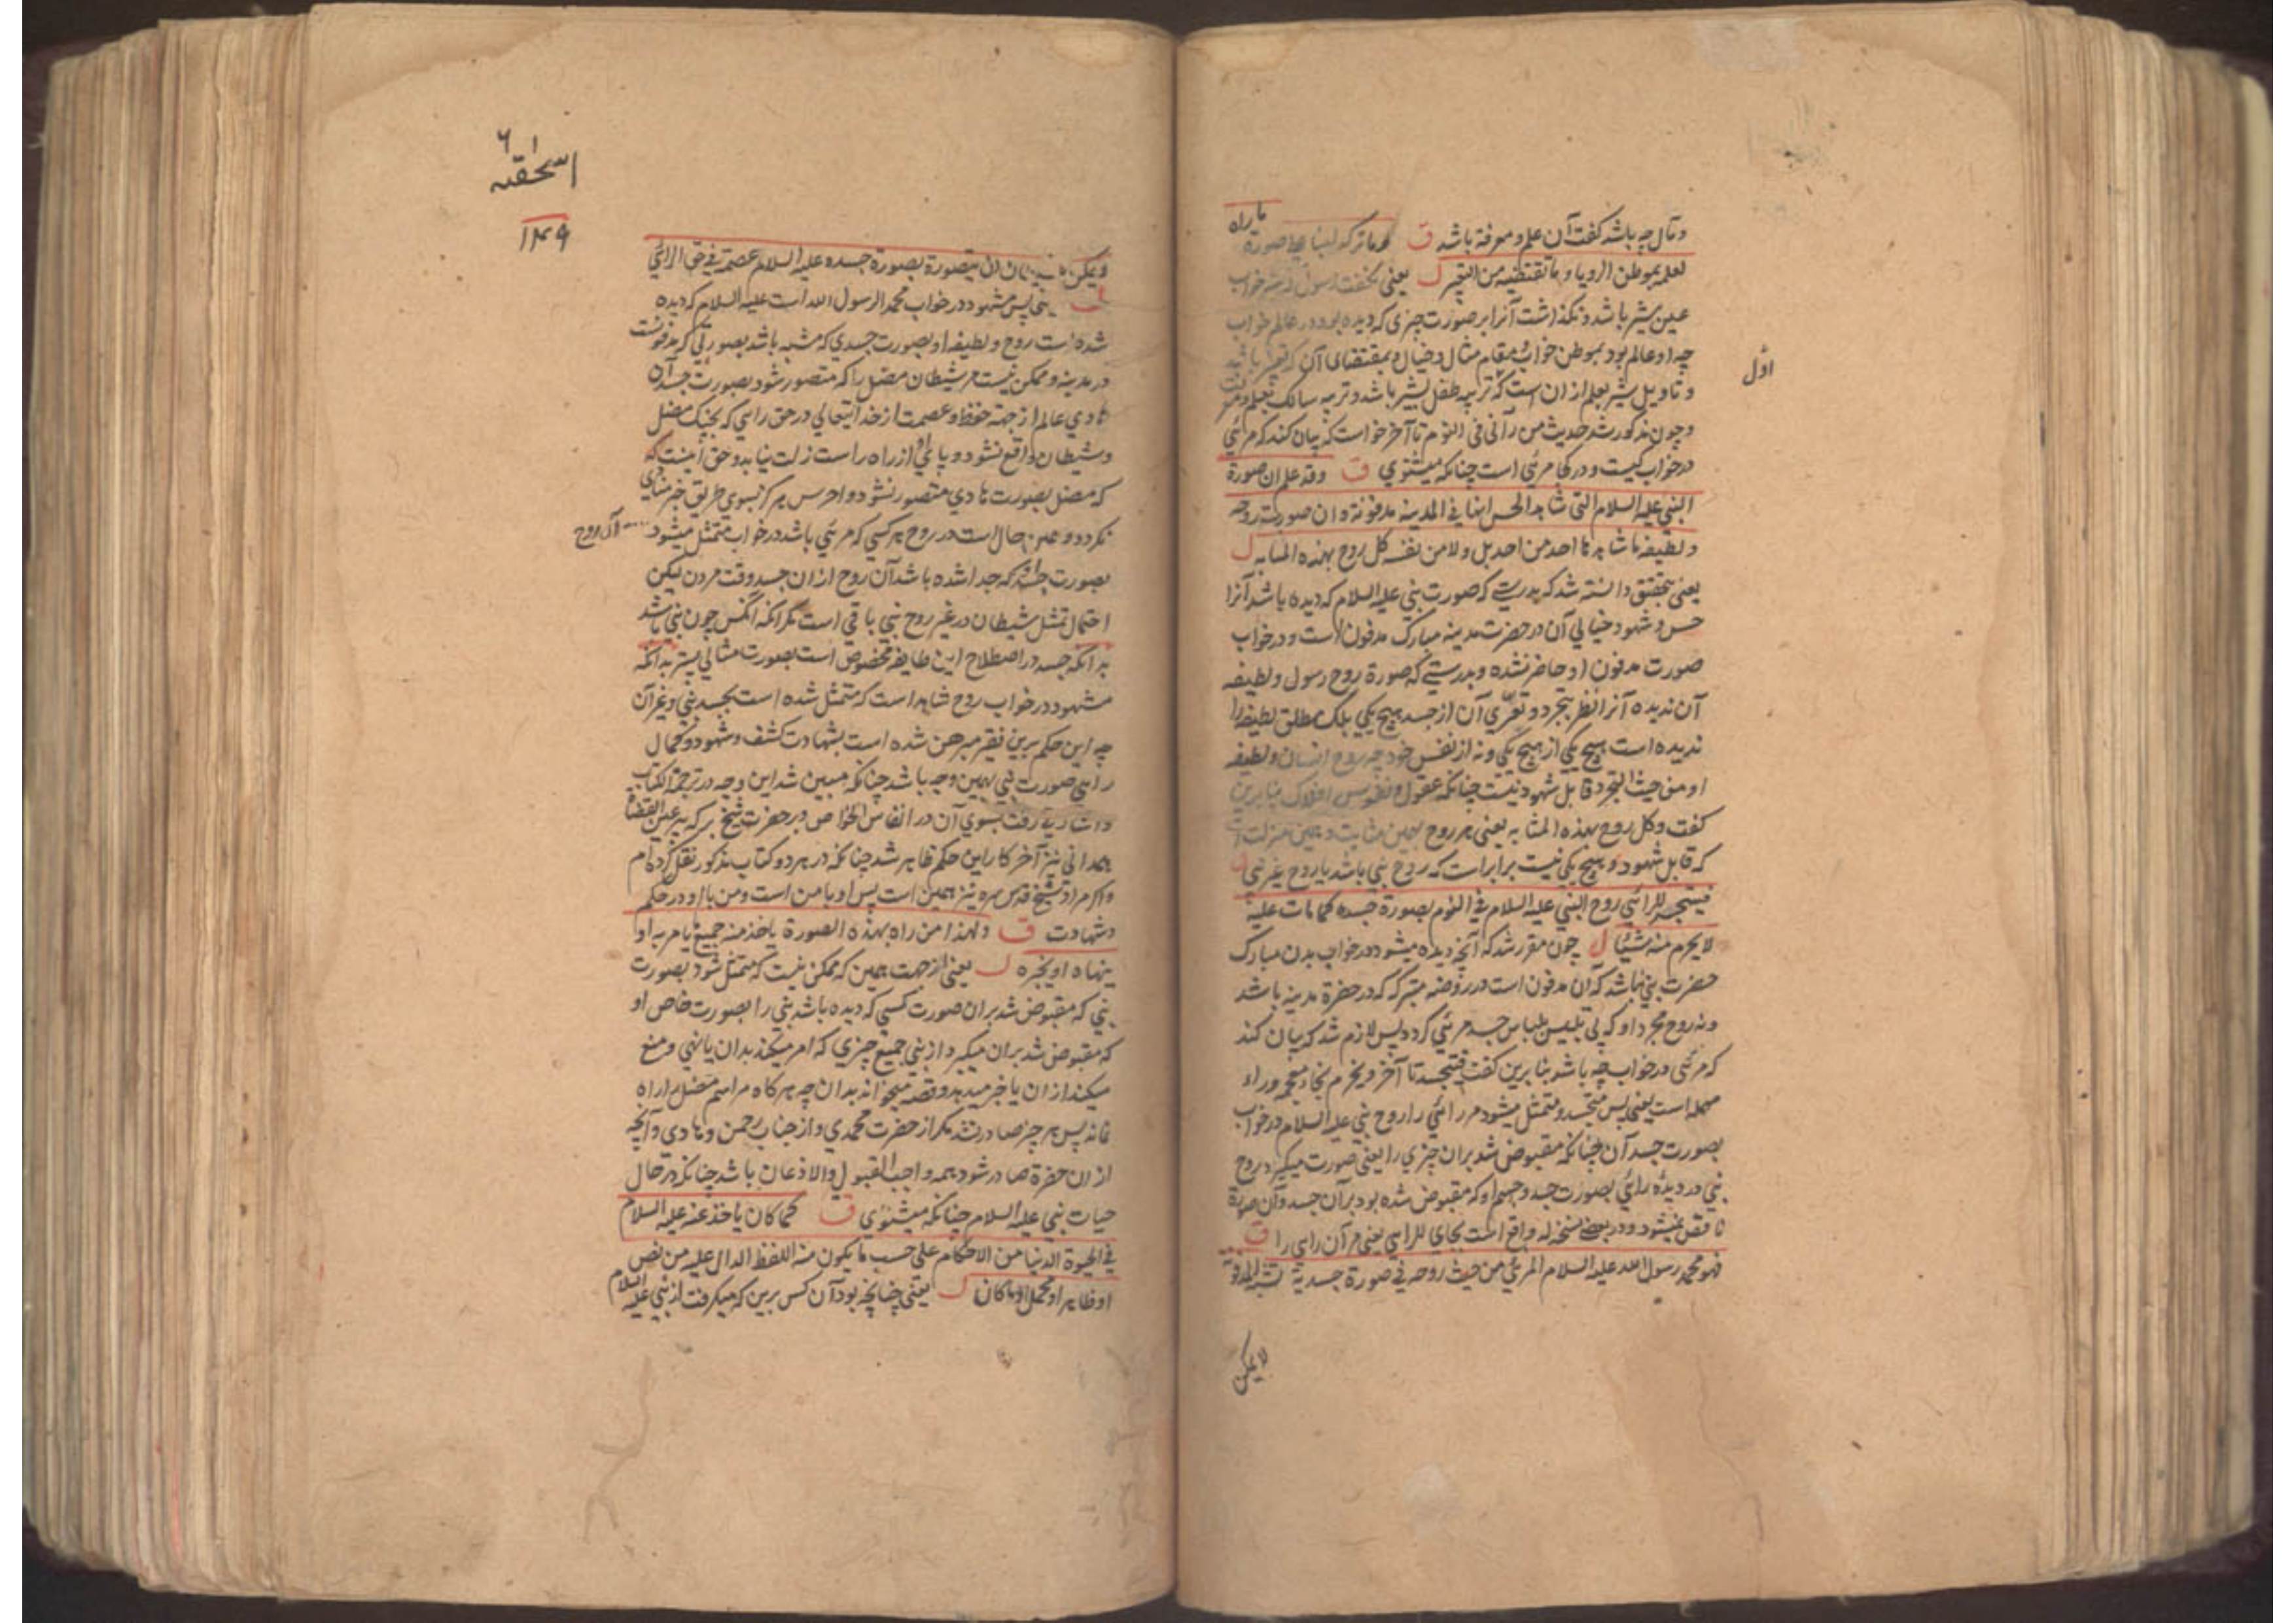 وتأول چه باشد گفت آن علم ومعرفة باشد ق وما ترکه لبنا علی صورة ما راه
لعلمه بموطن الرویا وما تقتضیه من التعبیر ل یعنی نگفت رسول که در خواب
عین شیر باشد ونگذاشت آنرا بر صورت چیزی که دیده بود در عالم خواب
چه او عالم بود بموطن خواب ومقام مثال وخیال وبمقتضای آن که تعبیر باشد
اول
وتاویل شیر بعلم از ان است که تربیه طفل بشیر باشد وتربیه سالک بعلم ومعرفت
وچون مذکور شد حدیث من رآنی فی النوم تا آخر خواست که بیان کند که مرئی
در خواب کیست ودر کجا مرئی است چنانکه میشنوی ق وقد علم ان صورة
النبی علیه السلام التی شاهدها الحس انها فی المدینه مدفونة وان صورت روحه
ولطیفه ما شاهدها احد من احد بل ولا من نفسه کل روح بهذه المثابه ل
یعنی بتحقیق دانسته شد که بدرستی که صورت نبی علیه السلام که دیده باشد آنرا
حس وشهود خیالی آن در حضرت مدینه مبارک مدفون است ودر خواب
صورت مدفون او حاضر نشده وبدرستی که صورة روح رسول ولطیفه
آن ندیده آنرا نظر بتجرد وتعری آن از جسد هیچ یکی بلک مطلق لطیفه را
ندیده است هیچ یکی از هیچ یکی ونه از نفس خود چه روح انسان ولطیفه
او من حیث التجرد قابل شهود نیست چنانکه عقول ونفوس افلاک بنابرین
گفت وکل روح بهذه المثابه یعنی هر روح بهمین مثابت وهمین منزلت
که قابل شهود هیچ یکی نیست برابر است که روح نبی باشد یا روح غیر نبی ق
فیتجسد للرائی روح النبی علیه السلام فی النوم بصورة جسده کما مات علیه
لا یخرم منه شیئا ل چون مقرر شد که آنچه دیده میشود در خواب بدن مبارک
حضرت نبی نباشد که آن مدفون است در روضه متبرکه که در حضرة مدینه باشد
ونه روح مجرد او که بی تلبیس بلباس جسد مرئی گردد پس لازم شد که بیان کند
که مرئی در خواب چه باشد بنابرین گفت فیتجسد تا آخر ویخرم بخاء معجمه وراء
مهمله است یعنی پس متجسد ومتمثل میشود مر رائی را روح نبی علیه السلام در خواب
بصورت جسد آن چنانکه مقبوض شد بران چیزی را یعنی صورت میگیرد روح
نبی در دیده رائی بصورت جسد وجسم او که مقبوض شده بود بر آن جسد وآن صورة
ناقص نمیشود ودر بعضی نسخه له واقع است بجای للرائی یعنی مر آن رائی را ق
فهو محمد رسول الله علیه السلام المرئی من حیث روحه فی صورة جسدیة تشبه المدفونة
لا یمکن
اسحقیه
۱۴۹
لا یمکن شیطان ان یتصور بصورة جسده علیه السلام عصمة فی حق الرائی
ل یعنی پس مشهود در خواب محمد الرسول الله است علیه السلام که دیده
شده است روح ولطیفه او بصورت جسدی که مشبه باشد بصورتی که مدفونست
در مدینه وممکن نیست مر شیطان مضل را که متصور شود بصورت جسد آن
هادی عالم از جهة حفظ وعصمت از خدایتعالی در حق رائی که بجنگ مضل
وشیطان واقع نشود وپای او از راه راست زلت نیابد وحق اینست که
که مضل بصورت هادی متصور نشود واحرس هرگز بسوی طریق خیر منادی
نگردد وهمین حال است در روح هر کسی که مرئی باشد در خواب متمثل میشود آن روح
بصورت جسد که جدا شده باشد آن روح از ان جسد وقت مردن لیکن
احتمال تمثل شیطان در غیر روح نبی باقی است مگر آنکه آنکس چون نبی باشد
بدانکه جسد در اصطلاح این طایفه مخصوص است بصورت مثالی پس بدانکه
مشهود در خواب روح شاهد است که متمثل شده است بجسد نبی وغیر آن
چه این حکم برین فقیر مبرهن شده است بشهادت کشف وشهود وکمال
رایی صورت نبی بهمین وجه باشد چنانکه مبین شد این وجه در ترجمة الکتاب
واشاریه رفت بسوی آن در انفاس الخواص وبر حضرت شیخ برکه بیر عین القضاة
همدانی نیز آخر کار این حکم ظاهر شد چنانکه در هر دو کتاب مذکور نقل کرده ام
واگر مراد شیخ قدس سره نیز همین است پس او با من است ومن با او در حکم
وشهادت ق ولهذا من راه بهذه الصورة یاخذ منه جمیع ما یامر به او
ینهاه او یخبره ل یعنی از جهت همین که ممکن نیست که متمثل شود بصورت
نبی که مقبوض شد بران صورت کسی که دیده باشد نبی را بصورت خاص او
که مقبوض شد بران میگیرد از نبی جمیع چیزی که امر میکند بدان یا نهی ومنع
میکند از ان یا خبر میدهد وقصه میخواند بدان چه هرگاه مراسم مضل را راه
نماند پس هر چیز صادر نشد مگر از حضرت محمدی واز جناب رحمن وهادی وآنچه
از ان حضرة صادر شود همه واجب القبول والاذعان باشد چنانکه در حال
حیات نبی علیه السلام چنانکه میشنوی ق کما کان یاخذ عنه علیه السلام
فی الحیوة الدنیا من الاحکام علی حسب ما یکون منه اللفظ الدال علیه من نص
او ظاهر او مجمل او ما کان ل یعنی چنانچه بود آن کس برین که میگرفت از نبی علیه السلام